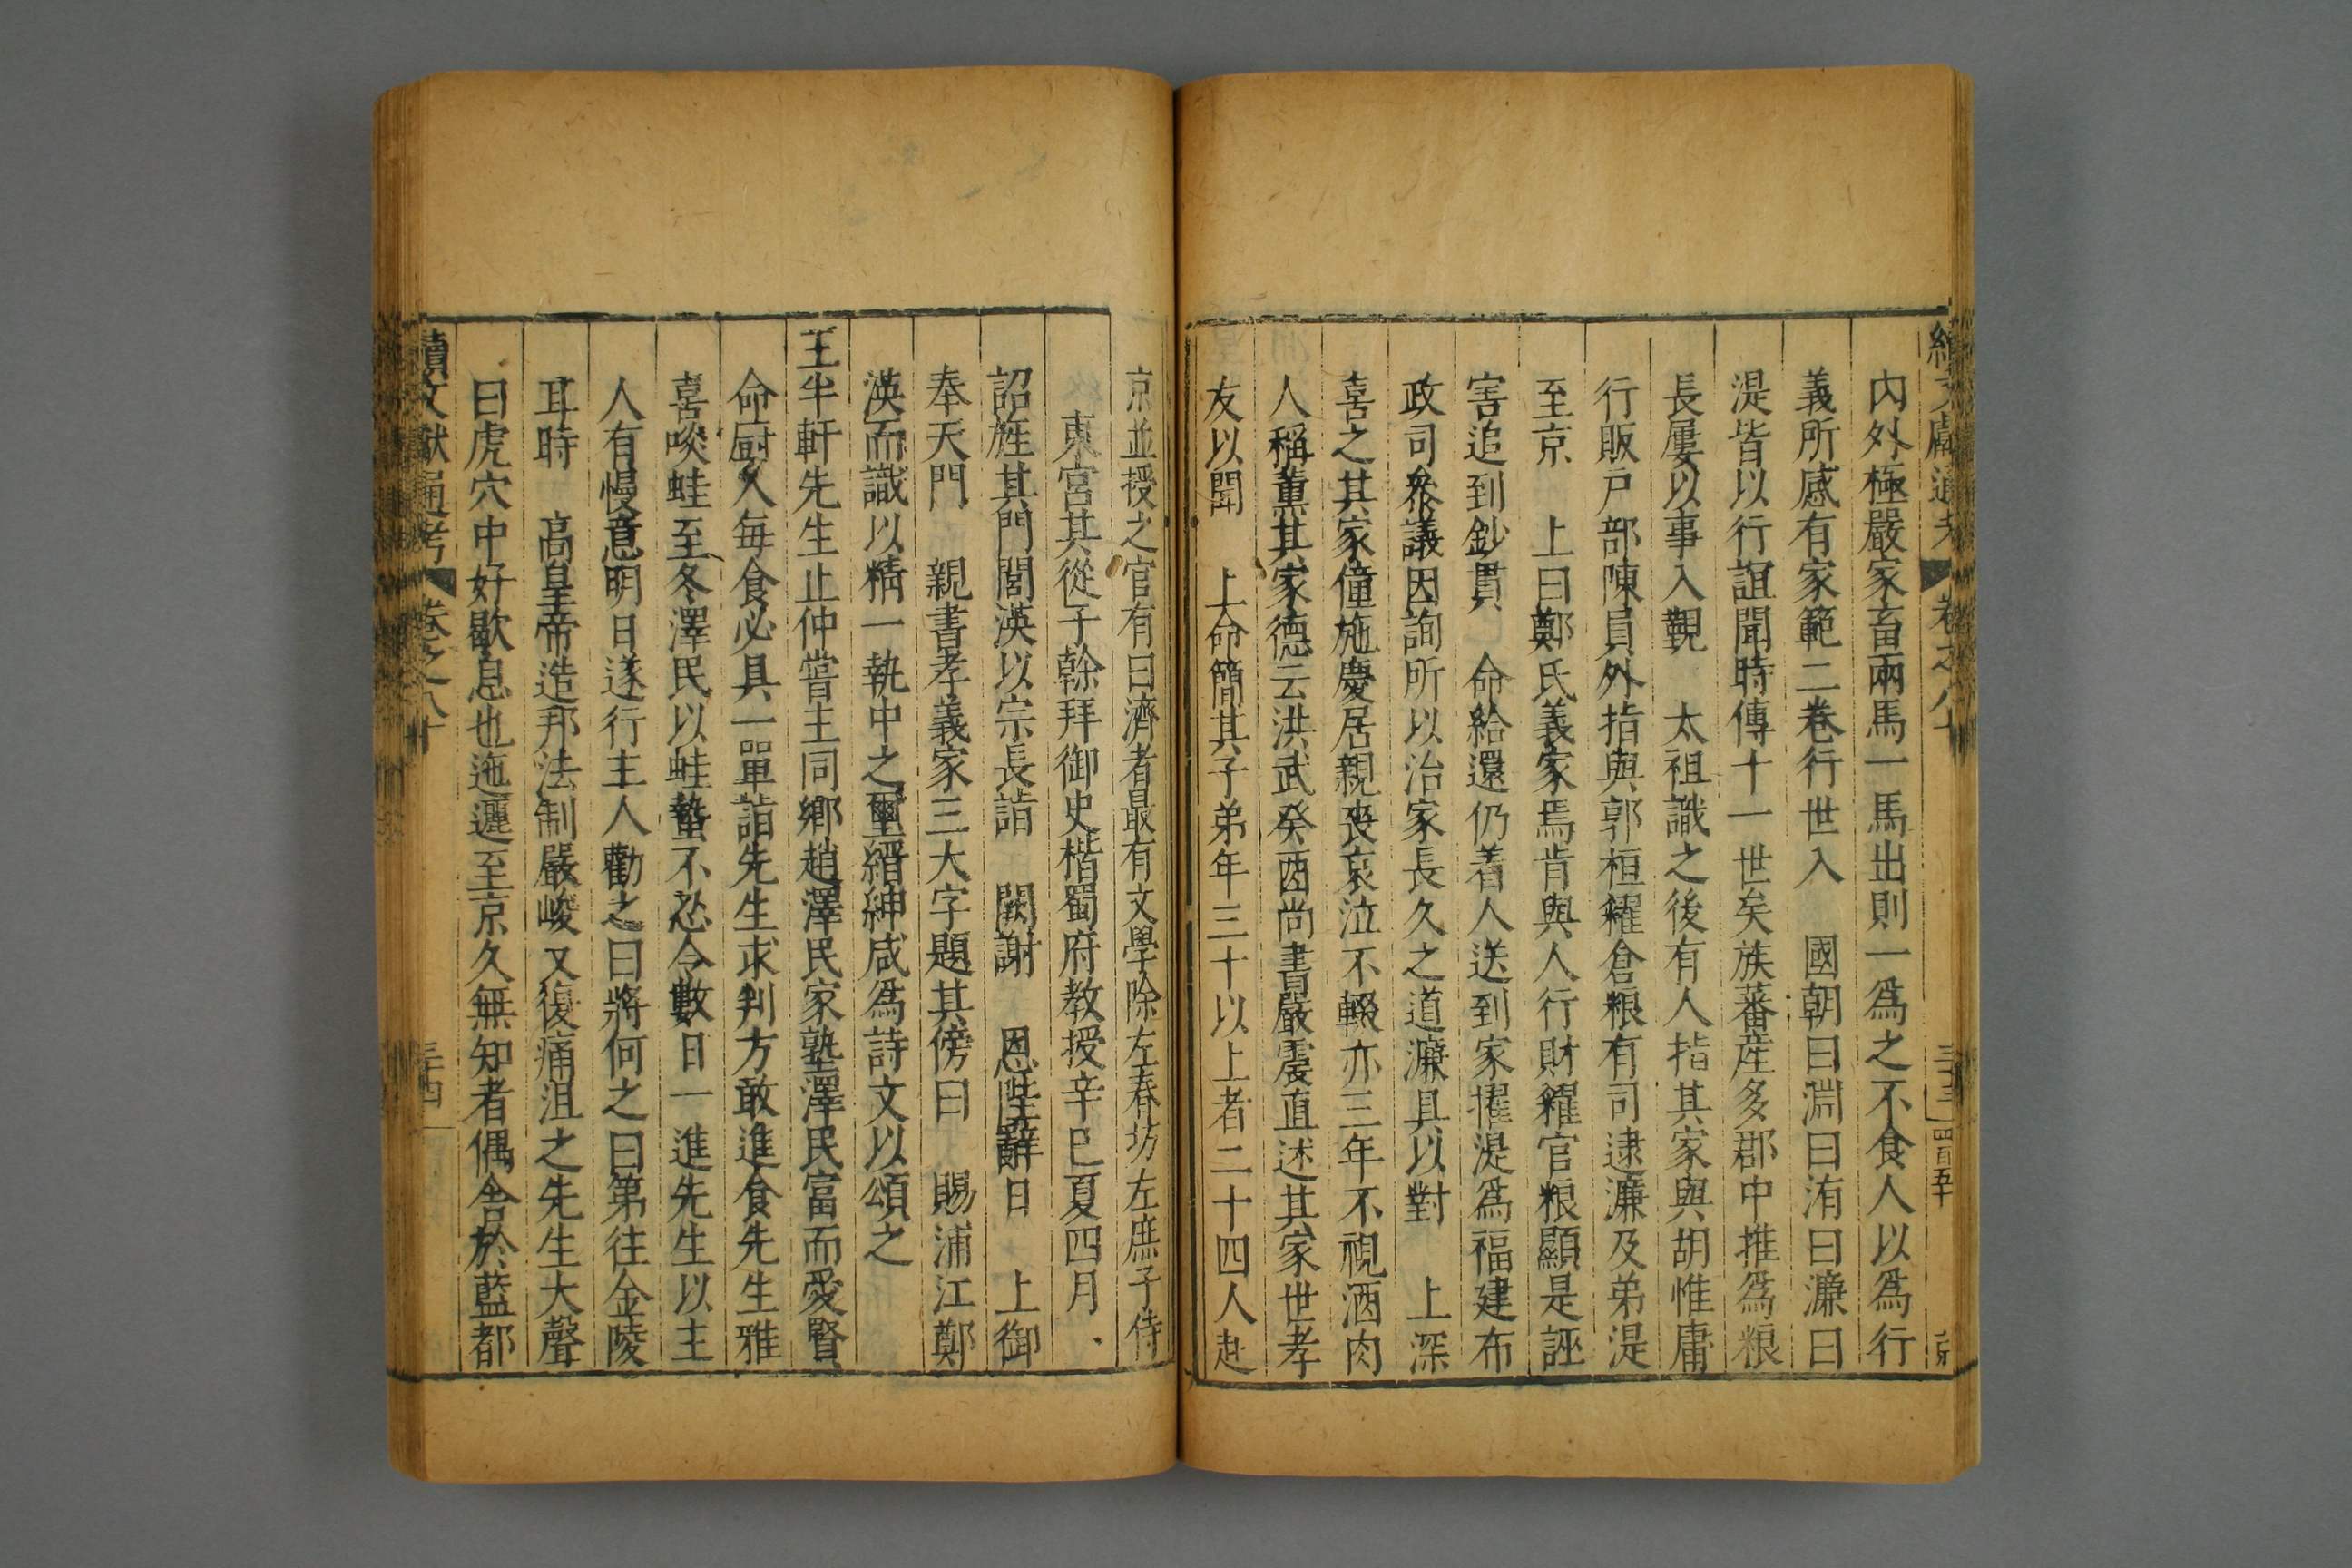 續文獻通考 卷之八十 三十三 四百五十
內外極嚴家畜兩馬一馬出則一爲之不食人以爲行
義所感有家範二卷行世入 國朝曰淵曰洧曰濂曰
湜皆以行誼聞時傳十一世矣族蕃產多郡中推爲粮
長屢以事入覲 太祖識之後有人指其家與胡惟庸
行販戶部陳員外指與郭桓糴倉粮有司逮濂及弟湜
至京 上曰鄭氏義家焉肯與人行財糴官粮顯是誣
害追到鈔貫 命給還仍着人送到家擢湜爲福建布
政司叅議因詢所以治家長久之道濂具以對 上深
喜之其家僮施慶居親喪哀泣不輟亦三年不視酒肉
人稱薰其家德云洪武癸酉尚書嚴震直述其家世孝
友以聞 上命簡其子弟年三十以上者二十四人赴
京並授之官有曰濟者最有文學除左春坊左庶子侍
東宮其從子榦拜御史楷蜀府教授辛巳夏四月
詔旌其門閭渶以宗長詣 闕謝 恩陛辭日 上御
奉天門 親書孝義家三大字題其傍曰 賜浦江鄭
渶而識以精一執中之璽縉紳咸爲詩文以頌之
王半軒先生止仲嘗主同鄉趙澤民家塾澤民富而愛賢
命厨人每食必具一單詣先生求判方敢進食先生雅
喜啖蛙至冬澤民以蛙蟄不忍令數日一進先生以主
人有慢意明日遂行主人勸之曰將何之曰第往金陵
耳時 高皇帝造邦法制嚴峻又復痛沮之先生大聲
曰虎穴中好歇息也迤邐至京久無知者偶舍於藍都
續文獻通考 卷之八十 三十四